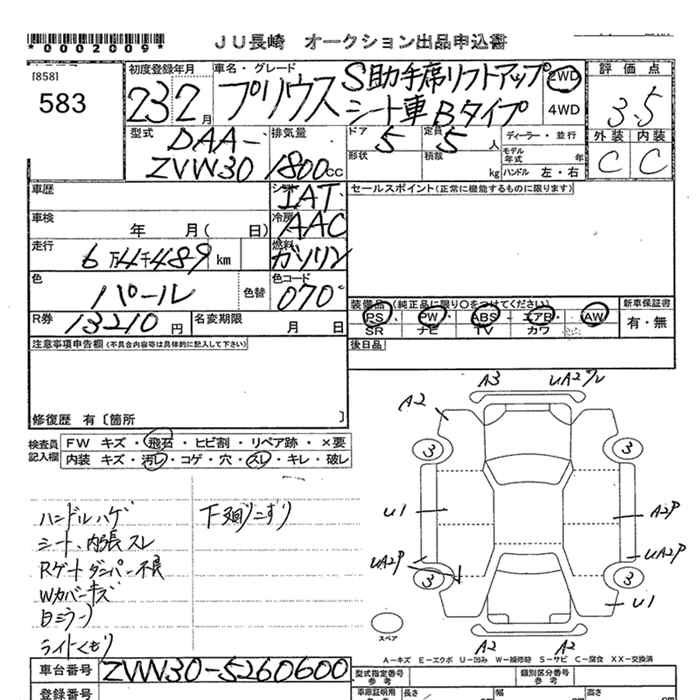 *0002009*
JU長崎 オークション出品申込書
[858]
583
初度登録年月 車名・グレード 評価点
23 2月 プリウス S助手席リフトアップシート車Bタイプ 2WD 4WD 3.5
型式 排気量 ドア 定員 ディーラー・並行 外装 内装
DAA-ZVW30 1800cc 5 5人 C C
形状 積載 kg モデル年式 年
ハンドル 左・右
車歴 シフト IAT セールスポイント(正常に機能するものに限ります)
車検 年 月( 日) 冷房 AAC
走行 6万4千489km 燃料 ガソリン
色 パール 色替 色コード 070
装備品(純正品に限り○をつけてください) 新車保証書
PS・PW・ABS・エアB・AW 有・無
SR ナビ TV カワ
R券 13210円 名変期限 月 日
後日品
注意事項申告欄(不具合内容等は具体的に記入して下さい)
修復歴 有〔箇所 〕
検査員記入欄
FW キズ・飛石・ヒビ割・リペア跡・×要
内装 キズ・汚レ・コゲ・穴・スレ・キレ・破レ
ハンドルハゲ 下廻リこすり
シート、内張スレ
Rゲートダンパー不良
Wカバーキズ
日ミラー
ライトくもり
A3 UA2
A2
3 3
U1 A2P
UA2P UA2P
3 3
U1
A2 A2
スペア
A-キズ E-エクボ U-凹み W-補修跡 S-サビ C-腐食 XX-交換済
車台番号 ZVW30-5260600
型式指定番号 参考 類別区分番号 参考
登録番号 車庫証明用 長さ 幅 高さ